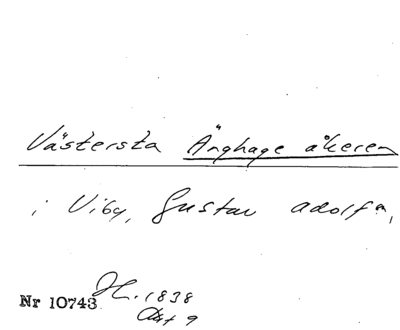 Västersta Änghage åkeren
i Viby, Gustav Adolf a,
Nr 10743 H. 1838
Akt 9